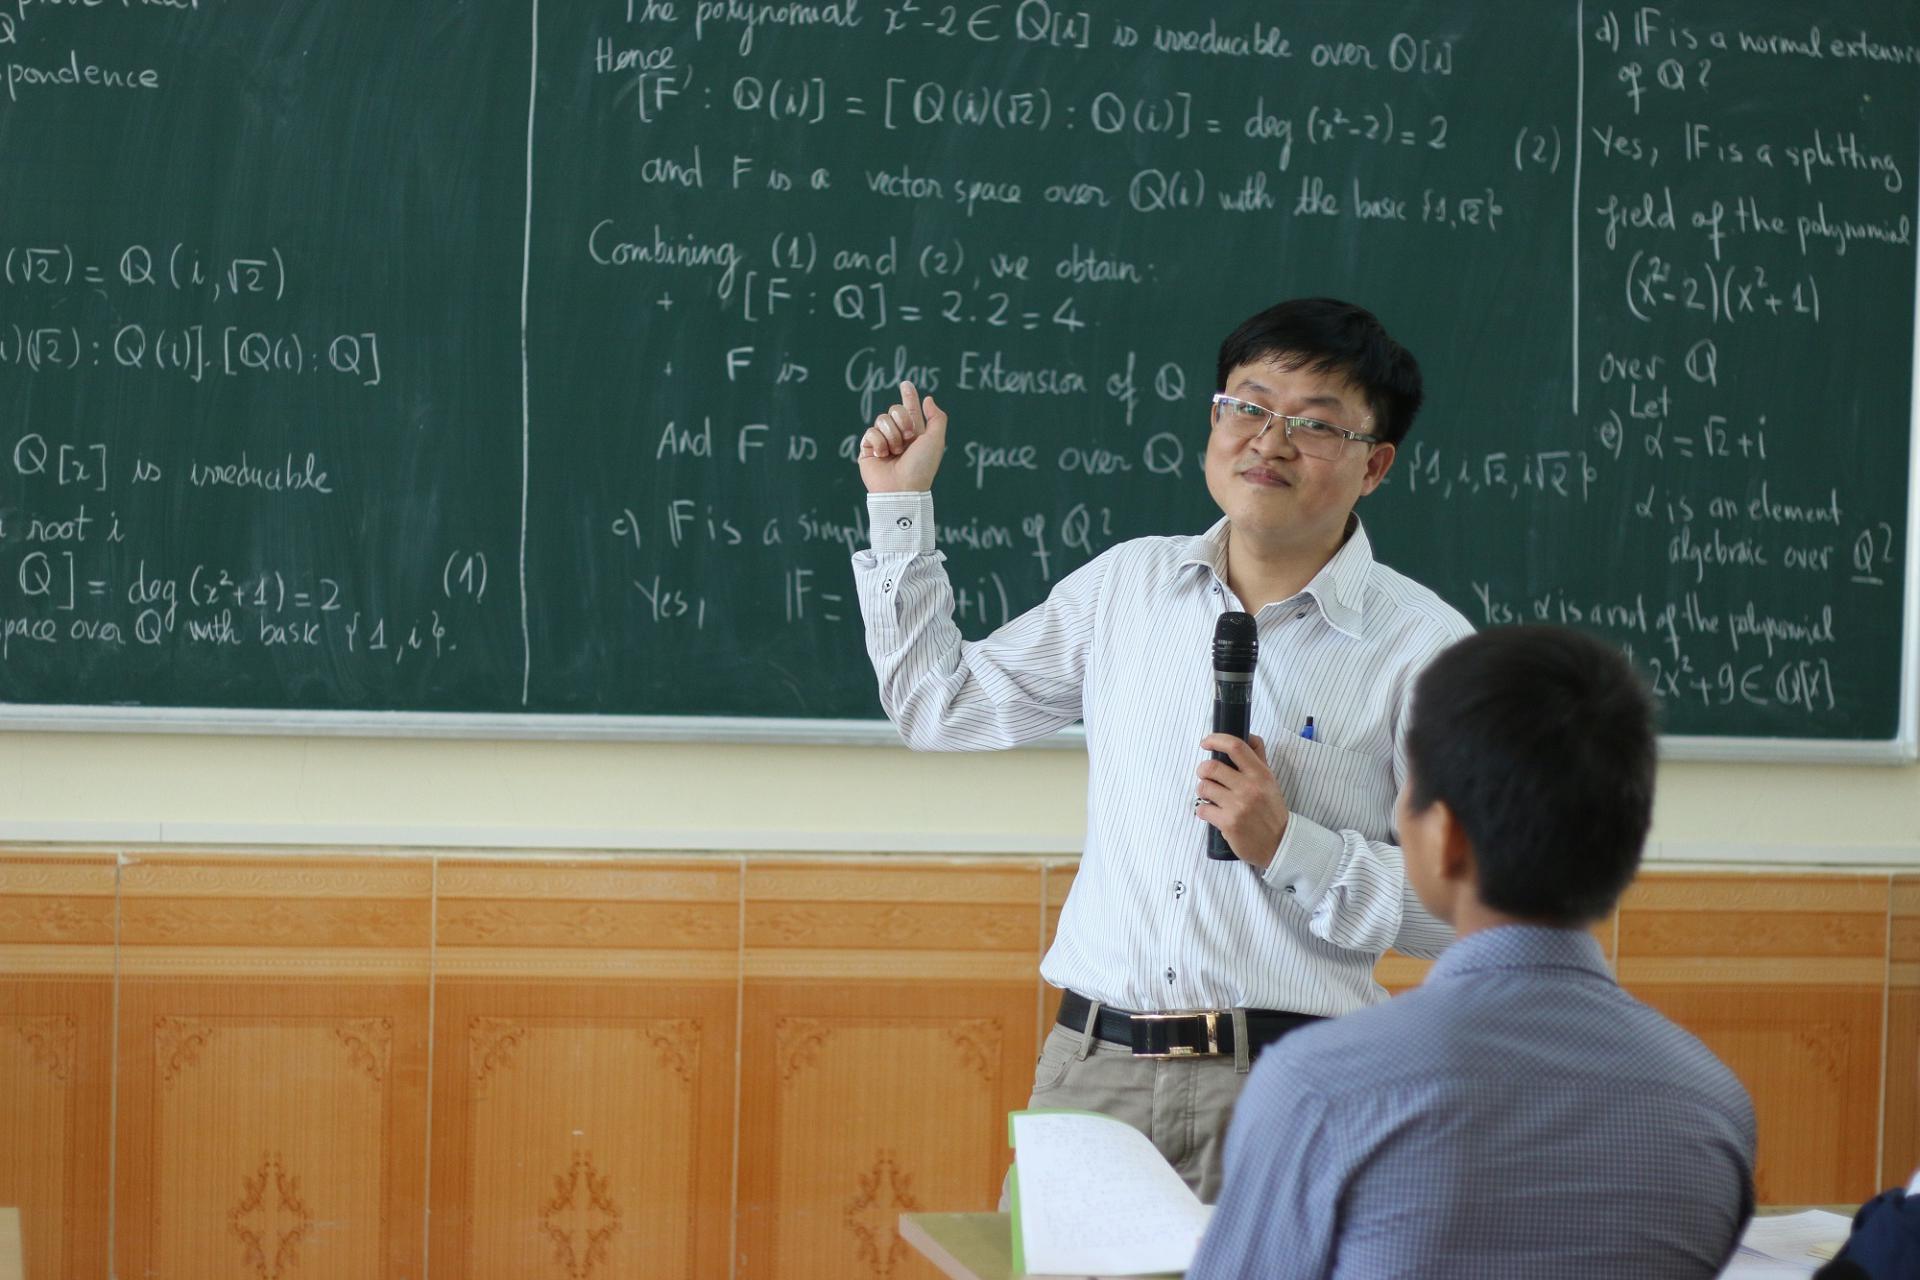 pondence
(√2) = Q(i,√2)
i)(√2) : Q(i)].[Q(i) : Q]
Q[x] is irreducible
root i
Q] = deg (x²+1) = 2 (1)
space over Q with basic {1,i}.
The polynomial x²-2 ∈ Q[i] is irreducible over Q[i]
Hence
[F : Q(i)] = [Q(i)(√2) : Q(i)] = deg (x²-2) = 2 (2)
and F is a vector space over Q(i) with the basic {1,√2}
Combining (1) and (2), we obtain:
+ [F : Q] = 2.2 = 4
+ F is Galois Extension of Q
And F is a space over Q {1,i,√2,i√2}
c) F is a simple ension of Q?
Yes, F = +i)
d) F is a normal extensio
of Q?
Yes, F is a splitting
field of the polynomial
(x²-2)(x²+1)
over Q
Let
e) α = √2+i
α is an element
algebraic over Q?
Yes, α is a root of the polynomial
2x²+9 ∈ Q[x]